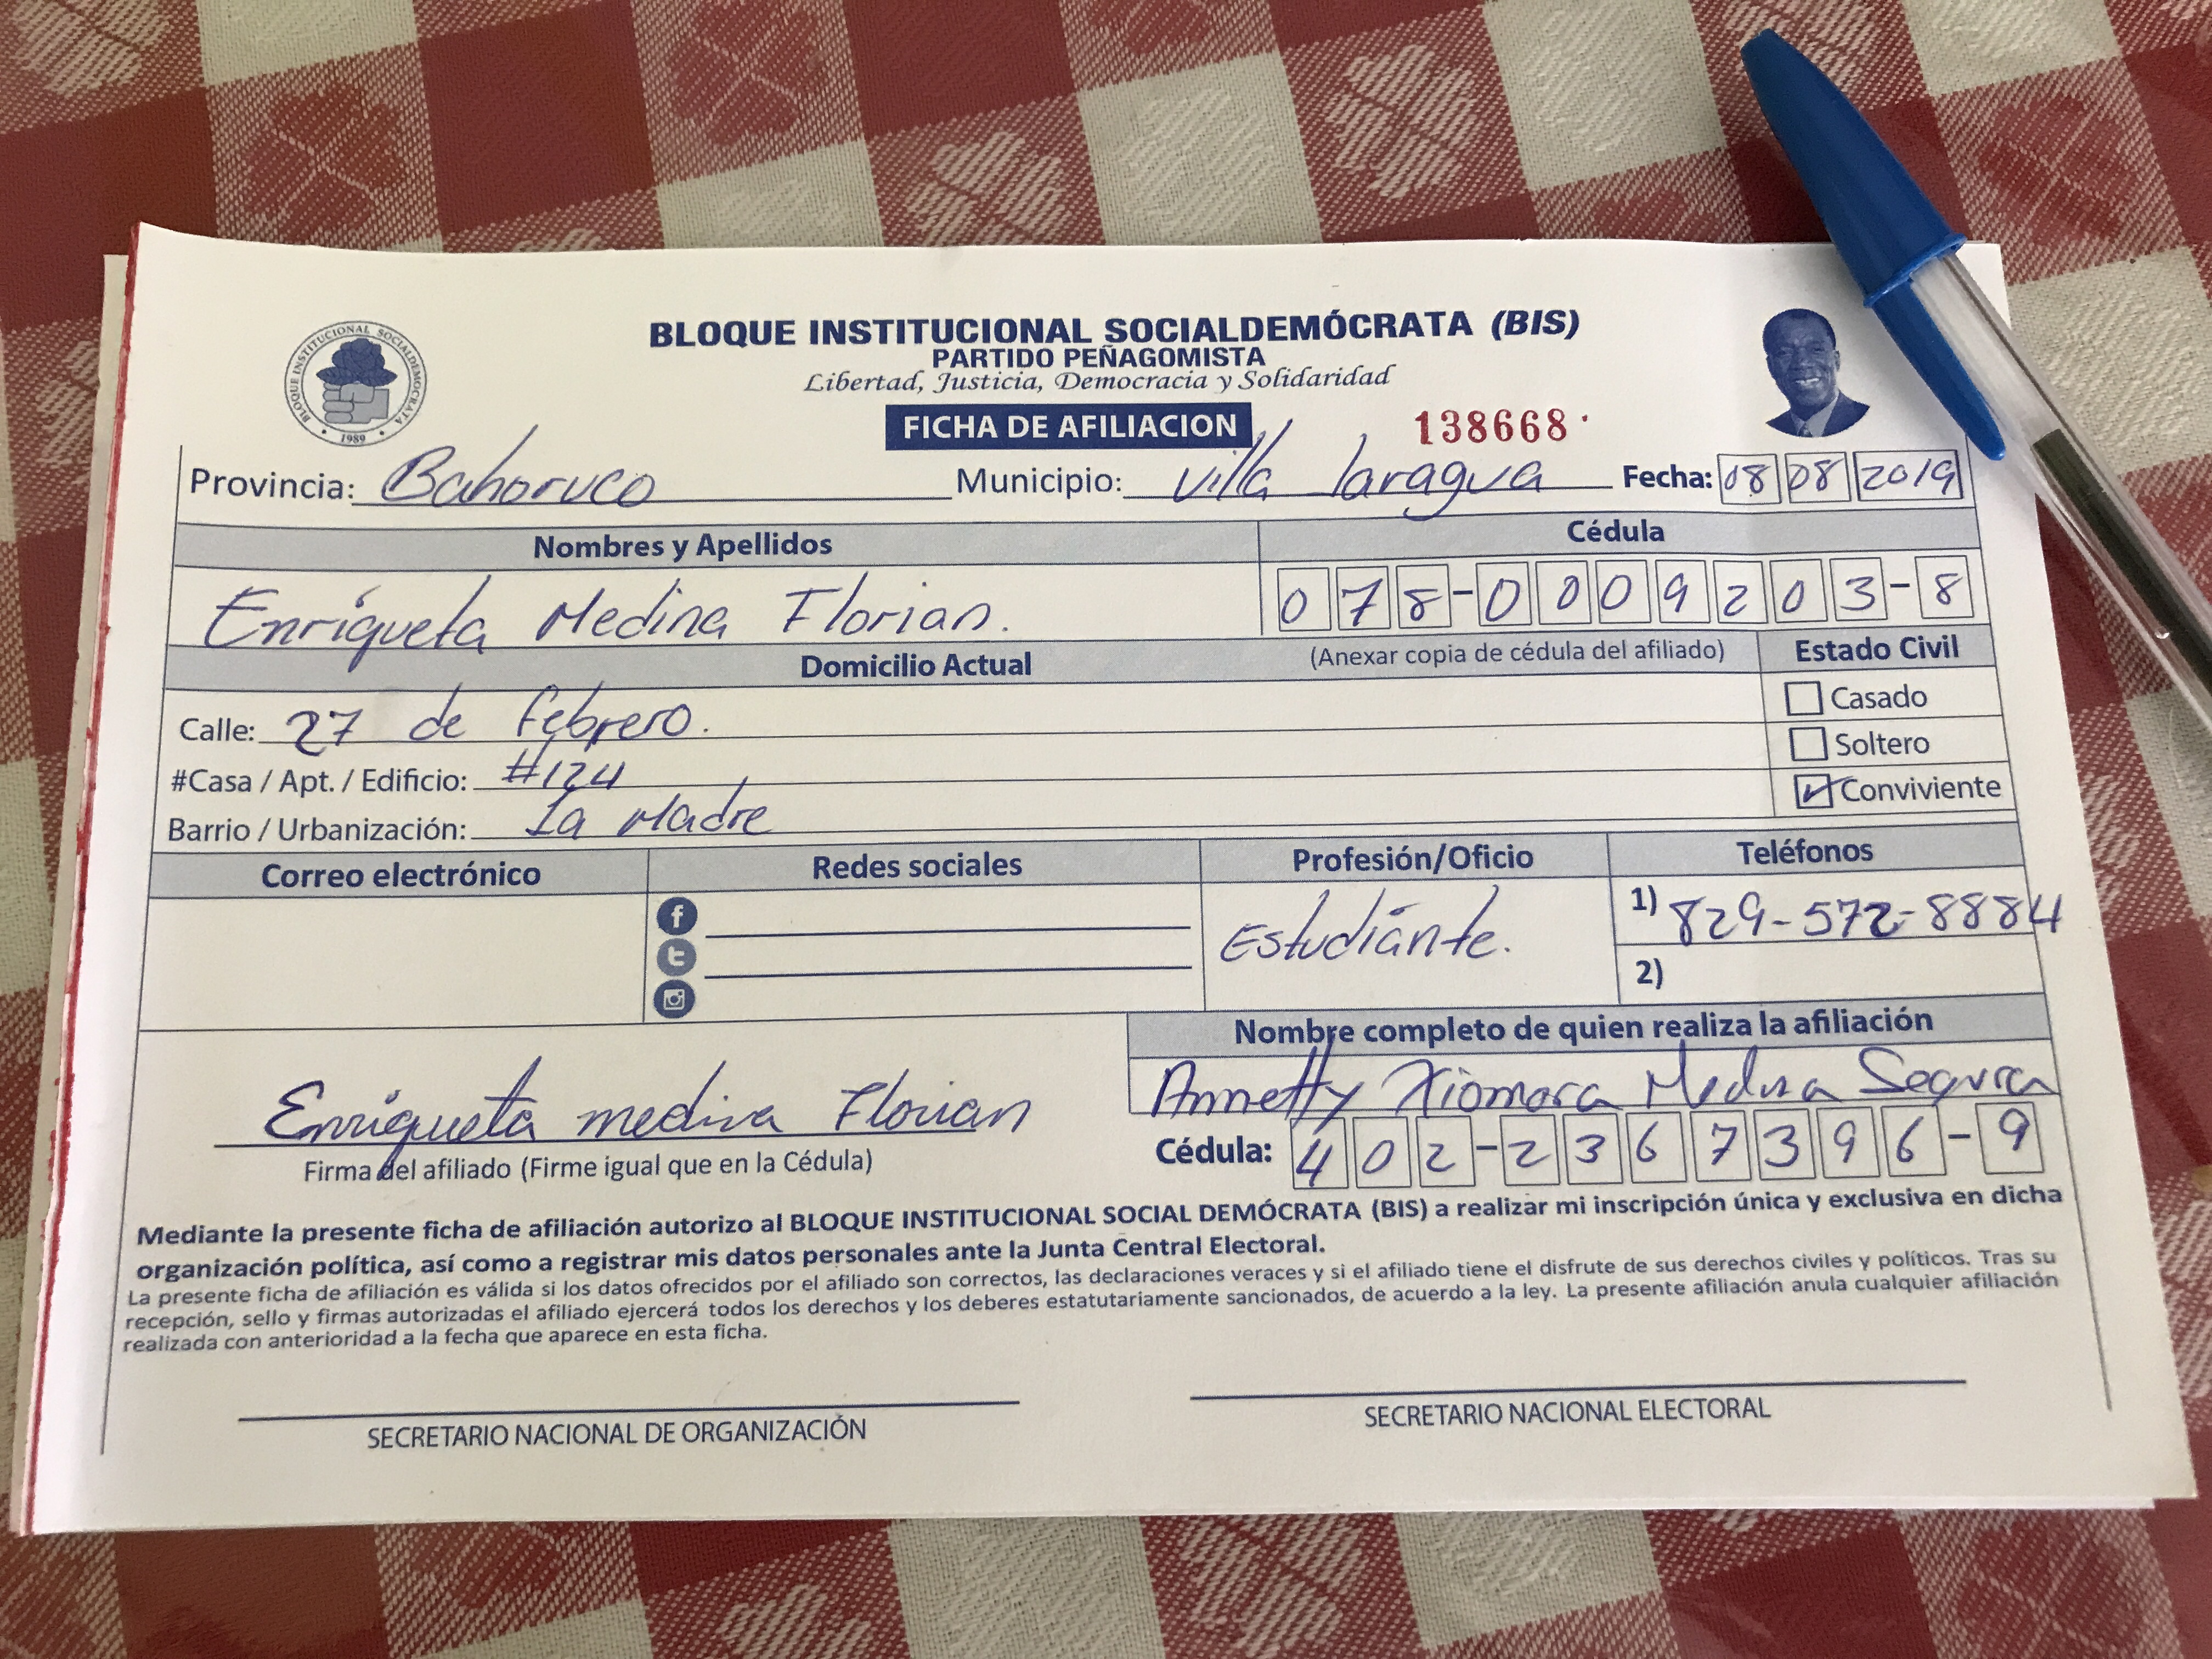 BLOQUE INSTITUCIONAL SOCIALDEMOCRATA
1989
BLOQUE INSTITUCIONAL SOCIALDEMÓCRATA (BIS)
PARTIDO PEÑAGOMISTA
Libertad, Justicia, Democracia y Solidaridad
FICHA DE AFILIACION 138668
Provincia: Bahoruco Municipio: Villa Jaragua Fecha: 08 08 2019
Nombres y Apellidos Cédula
Enriqueta Medina Florian. 078-0009203-8
Domicilio Actual (Anexar copia de cédula del afiliado) Estado Civil
Calle: 27 de febrero. Casado
#Casa / Apt. / Edificio: #124 Soltero
Barrio / Urbanización: La Madre Conviviente
Correo electrónico Redes sociales Profesión/Oficio Teléfonos
Estudiante. 1) 829-572-8884
2)
Nombre completo de quien realiza la afiliación
Enriqueta medina Florian Annetty Xiomara Medina Segura
Firma del afiliado (Firme igual que en la Cédula) Cédula: 402-2367396-9
Mediante la presente ficha de afiliación autorizo al BLOQUE INSTITUCIONAL SOCIAL DEMÓCRATA (BIS) a realizar mi inscripción única y exclusiva en dicha
organización política, así como a registrar mis datos personales ante la Junta Central Electoral.
La presente ficha de afiliación es válida si los datos ofrecidos por el afiliado son correctos, las declaraciones veraces y si el afiliado tiene el disfrute de sus derechos civiles y políticos. Tras su
recepción, sello y firmas autorizadas el afiliado ejercerá todos los derechos y los deberes estatutariamente sancionados, de acuerdo a la ley. La presente afiliación anula cualquier afiliación
realizada con anterioridad a la fecha que aparece en esta ficha.
SECRETARIO NACIONAL DE ORGANIZACIÓN SECRETARIO NACIONAL ELECTORAL